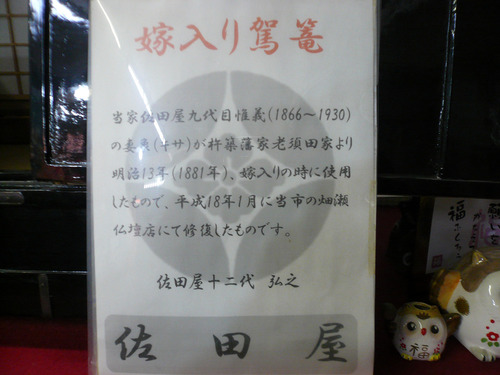 嫁入り駕篭
当家佐田屋九代目惟義(1866～1930)
の妻(キサ)が杵築藩家老須田家より
明治13年(1881年)、嫁入りの時に使用
したもので、平成18年1月に当市の畑瀬
仏壇店にて修復したものです。
佐田屋十二代 弘之
佐田屋
福
福